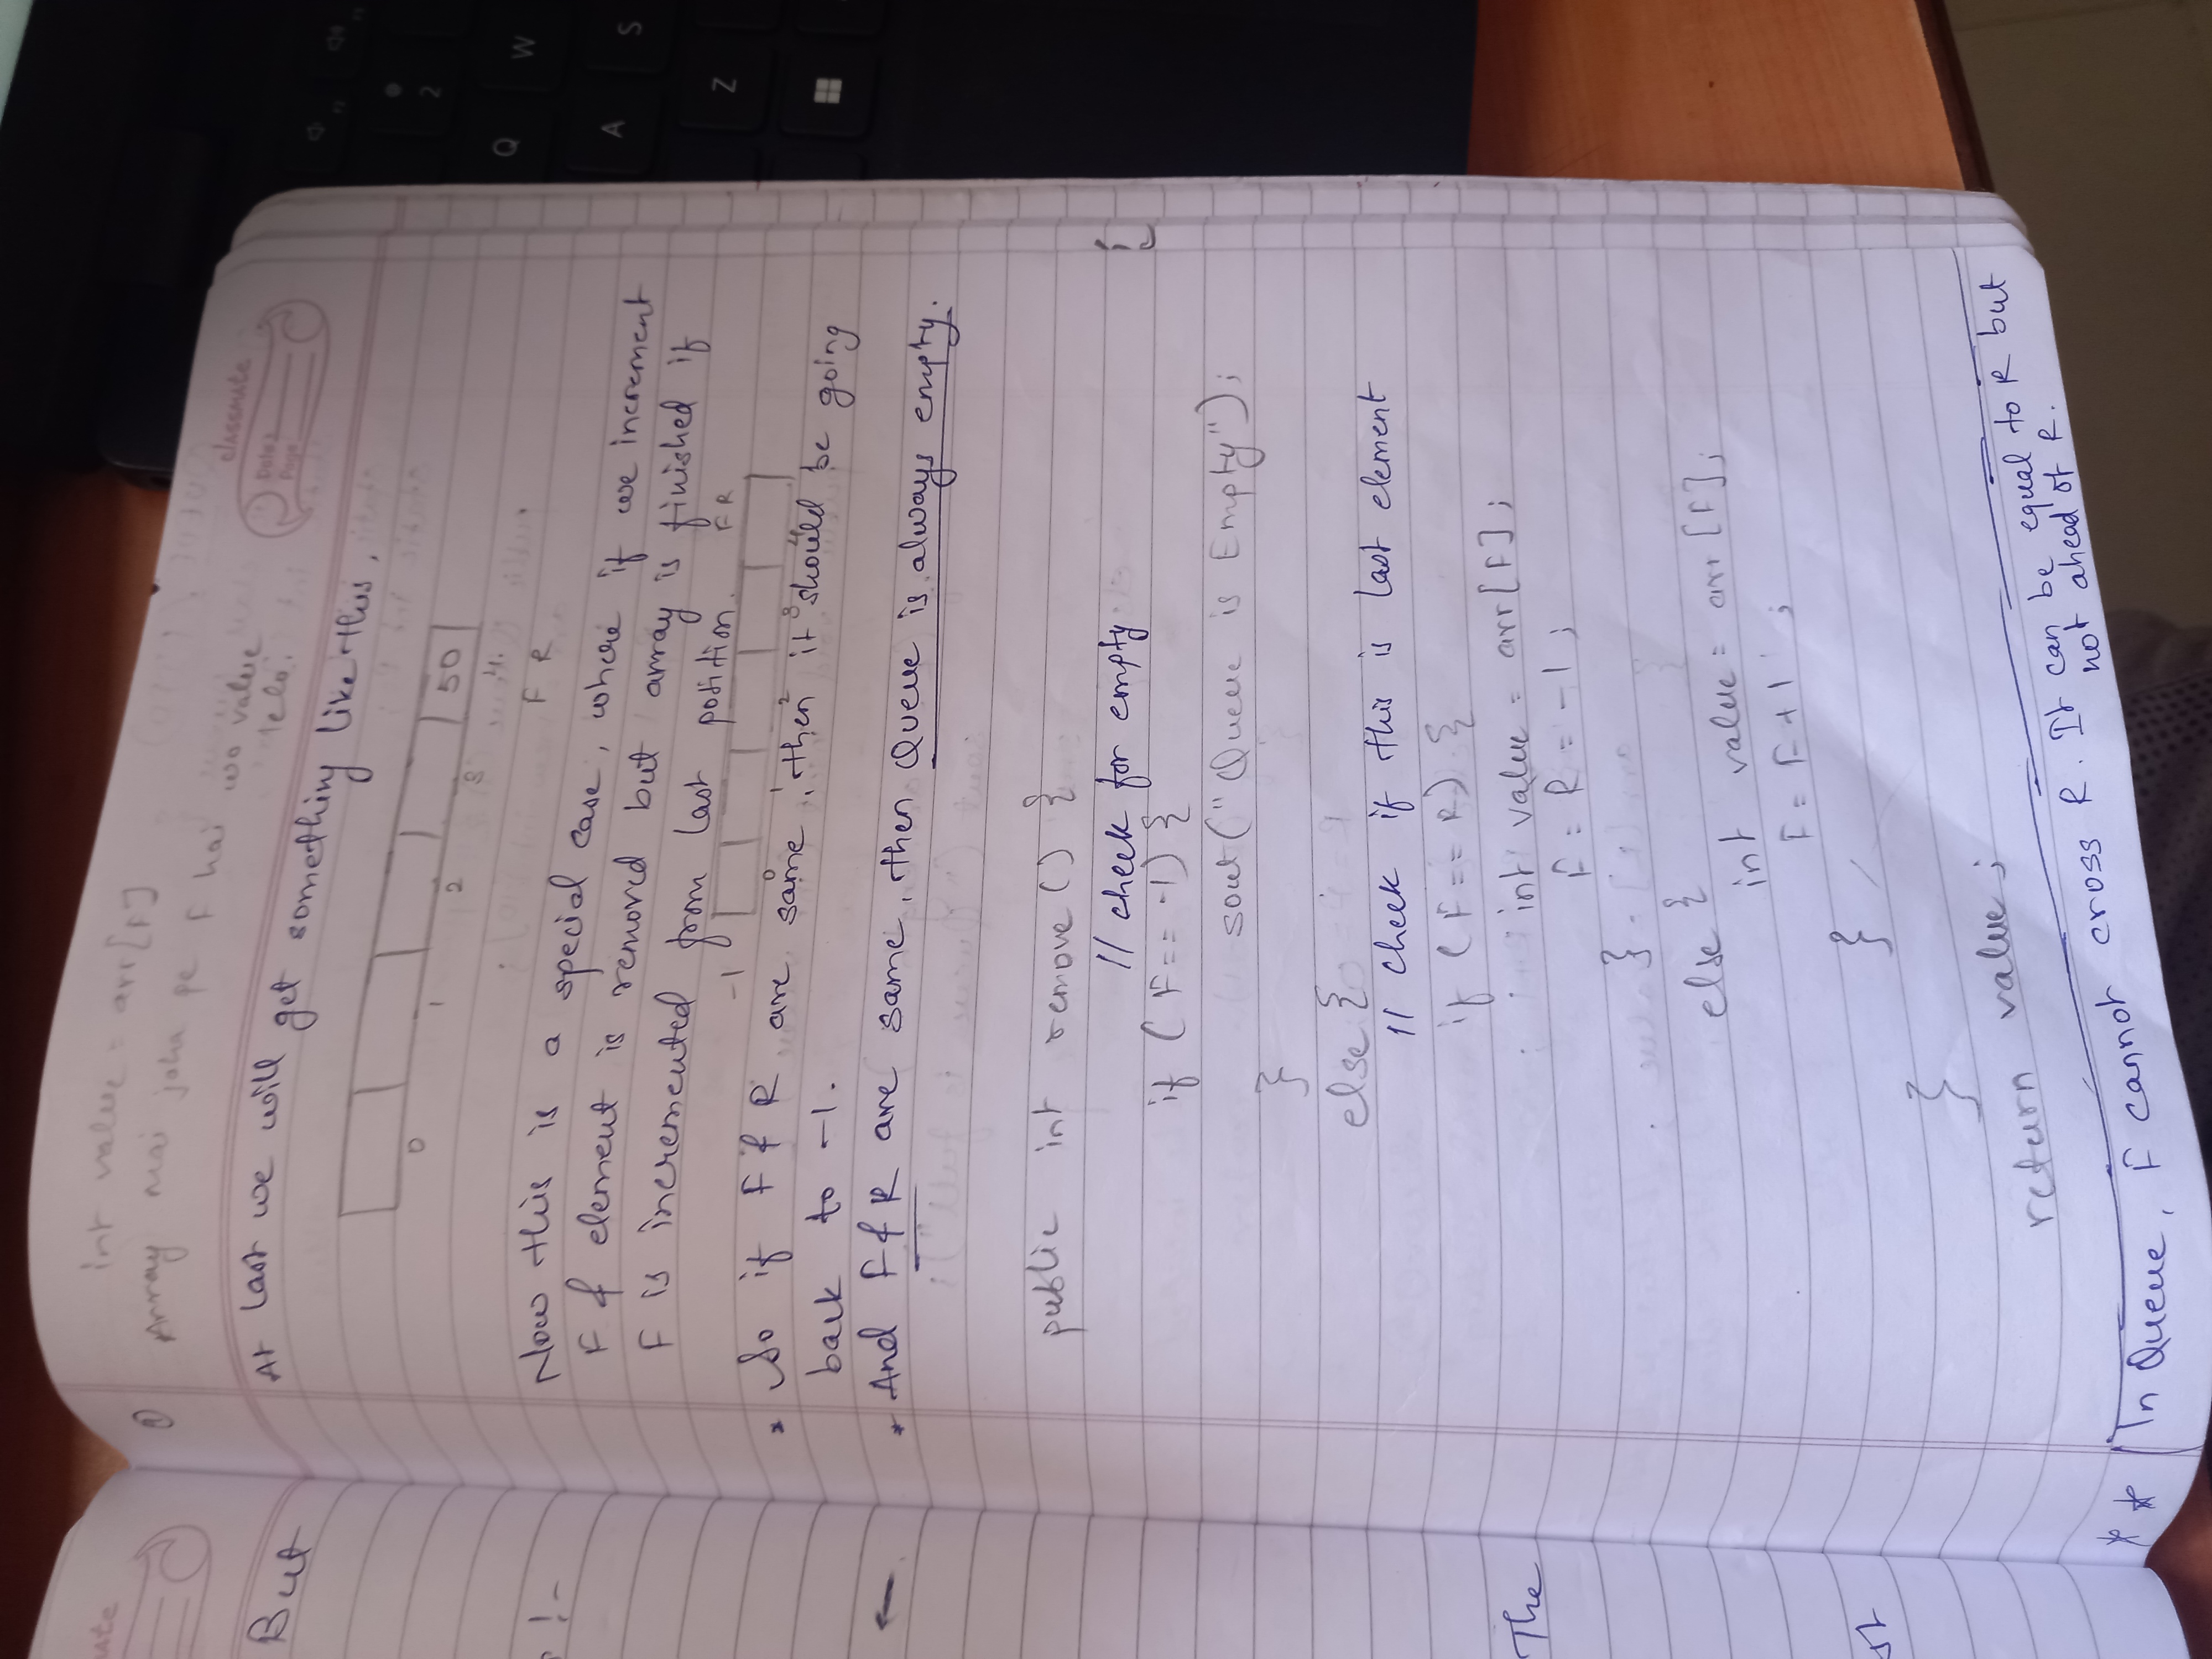 int value = arr[F]
Array mai jaha pe F hai wo value
lelo.
classmate
Date
Page
At last we will get something like this,
50
0 1 2 3 4
F R
Now this is a special case, where if we increment
F & element is removed but array is finished if
F is incremented from last position.
F R
-1
0 1 2 3 4
* So if F & R are same, then it should be going
back to -1.
* And F & R are same, then Queue is always empty.
public int remove() {
// check for empty
if (F == -1) {
sout("Queue is Empty");
}
else {
// check if this is last element
if (F == R) {
int value = arr[F];
F = R = -1;
}
else {
int value = arr[F];
F = F + 1;
}
}
return value;
** In Queue, F cannot cross R. It can be equal to R but
not ahead of R.
But
The
2
Q
W
A
S
Z